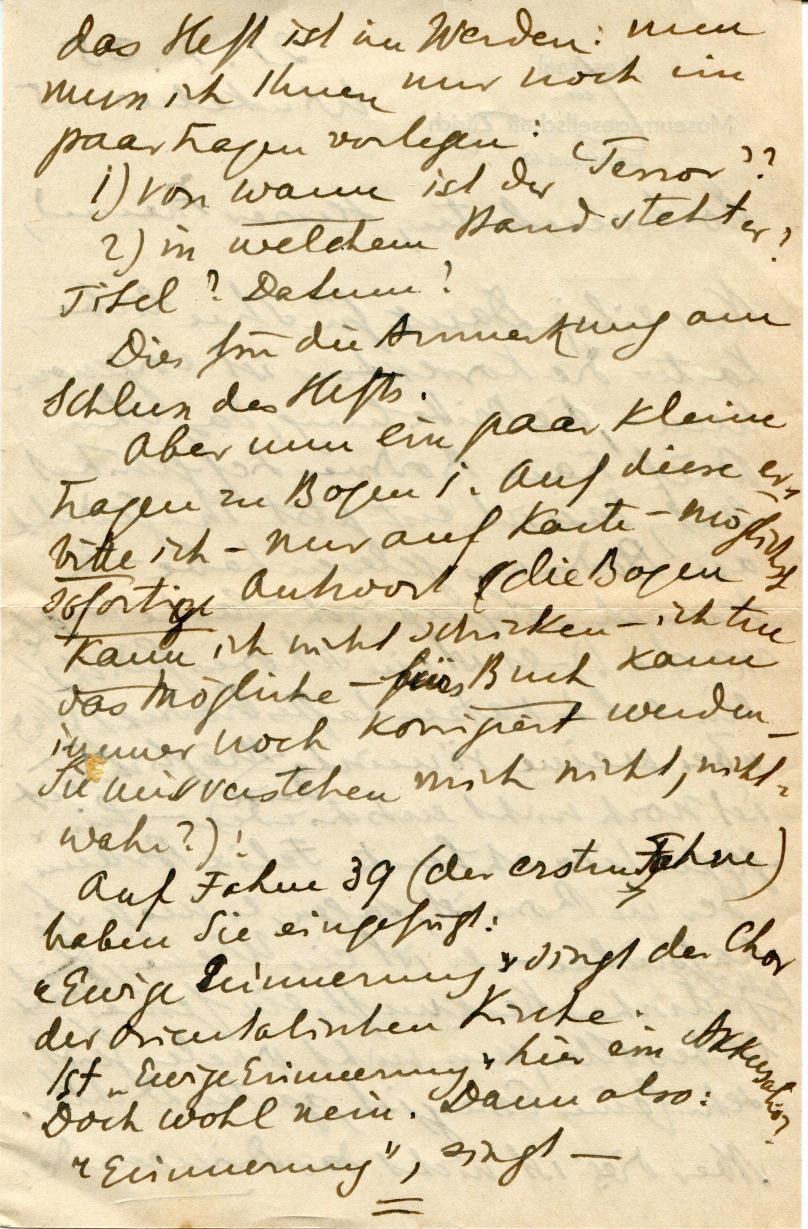 das Heft ist im Werden: nun
muss ich Ihnen nur noch ein
paar Fragen vorlegen:
1) von wann ist der "Terror"?
2) in welchem Band steht er?
Titel? Datum?
Dies für die Anmerkung am
Schluss des Hefts.
Aber nun ein paar kleine
Fragen zu Bogen 1. Auf diese er-
bitte ich – nur auf Karte – möglichst
sofortige Antwort (die Bogen
kann ich nicht schicken – ich tue
das Mögliche – fürs Buch kann
immer noch korrigiert werden –
Sie missverstehen mich nicht, nicht-
wahr?)!
Auf Fahne 39 (der ersten Fahne)
haben Sie eingefügt:
"Ewige Erinnerung" singt der Chor
der orientalischen Kirche.
Ist "Ewige Erinnerung" hier ein Akkusativ?
Doch wohl nein. Dann also:
"Erinnerung", singt –